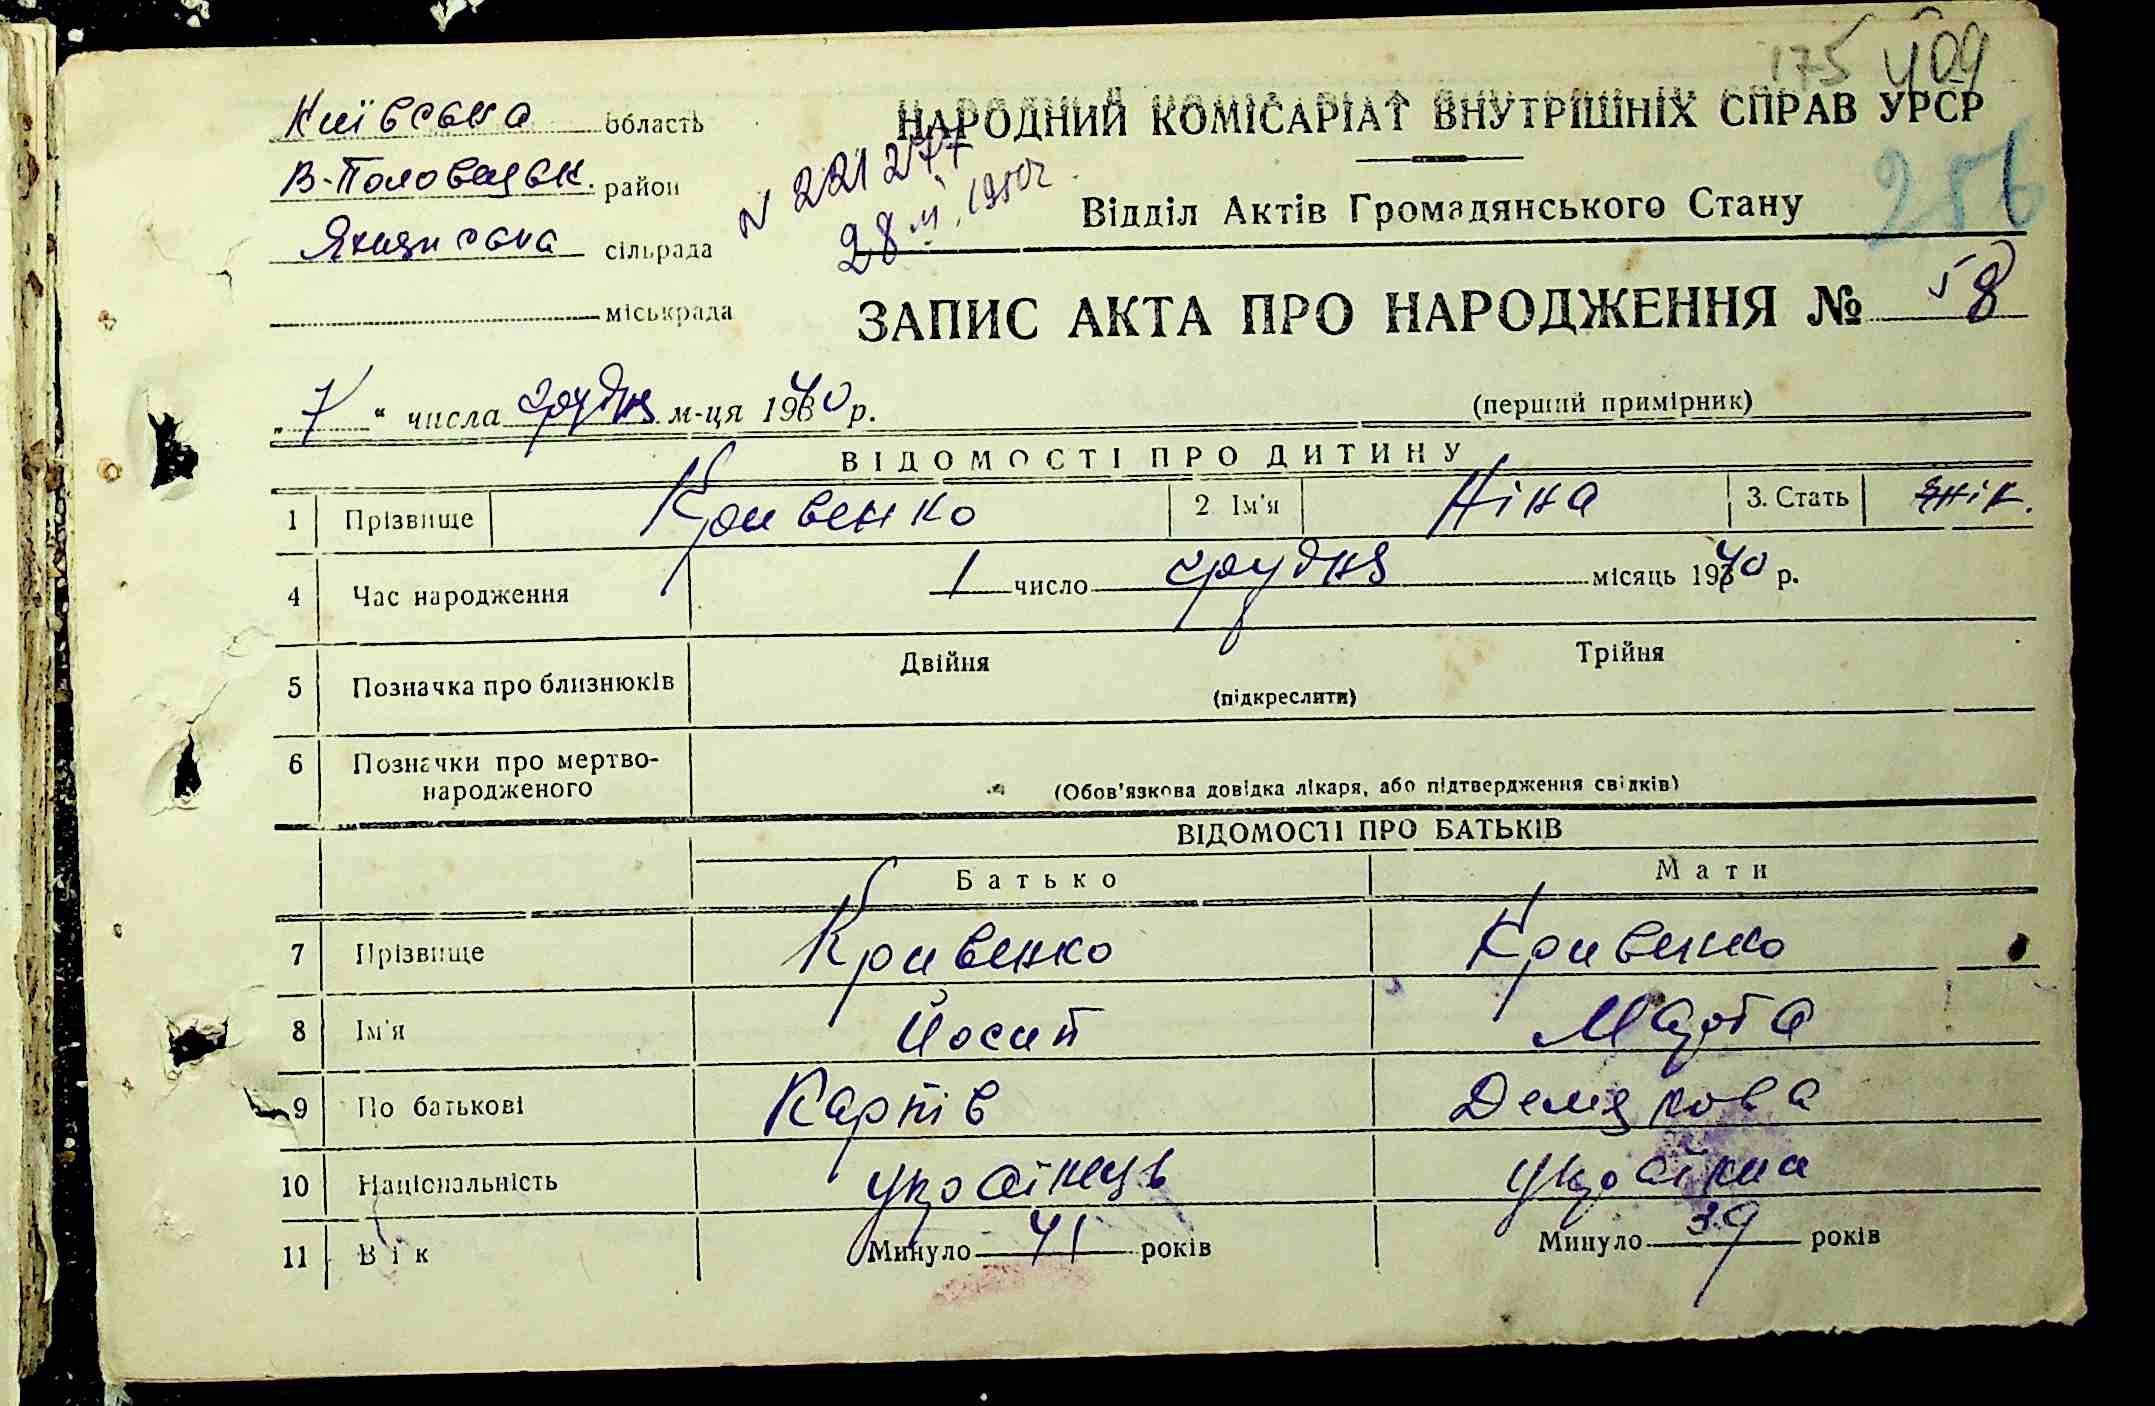 175 409
Київська область
НАРОДНИЙ КОМІСАРІАТ ВНУТРІШНІХ СПРАВ УРСР
В-Половецьк. район
N 221277
28 XI. 1950г.
256
Відділ Актів Громадянського Стану
сільрада
міськрада
ЗАПИС АКТА ПРО НАРОДЖЕННЯ № 58
„7“ числа грудня м-ця 1940 р.
(перший примірник)
ВІДОМОСТІ ПРО ДИТИНУ
1 Прізвище Кривенко 2 Ім'я Ніна 3. Стать жін.
4 Час народження 1 число грудня місяць 1940 р.
5 Позначка про близнюків Двійня Трійня
(підкреслити)
6 Позначки про мертво-
народженого (Обов'язкова довідка лікаря, або підтвердження свідків)
ВІДОМОСТІ ПРО БАТЬКІВ
Батько Мати
7 Прізвище Кривенко Кривенко
8 Ім'я Йосип Марта
9 По батькові Карпів Демидова
10 Національність українець українка
11 Вік Минуло 41 років Минуло 39 років